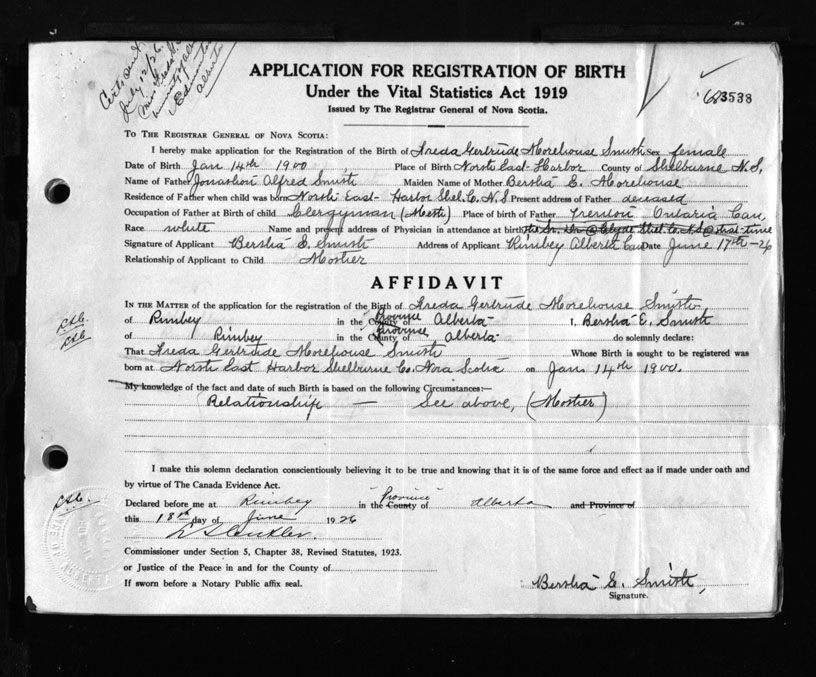 Cert sent
July 12/26
Miss Freda S.
Edmonton
Alberta
APPLICATION FOR REGISTRATION OF BIRTH
Under the Vital Statistics Act 1919
Issued by The Registrar General of Nova Scotia.
3538
TO THE REGISTRAR GENERAL OF NOVA SCOTIA:
I hereby make application for the Registration of the Birth of Freda Gertrude Morehouse Smith Sex female
Date of Birth Jan 14th 1900 Place of Birth North East Harbor County of Shelburne N.S.
Name of Father Jonathon Alfred Smith Maiden Name of Mother Bertha E. Morehouse
Residence of Father when child was born North East Harbor Shel. Co. N.S Present address of Father deceased
Occupation of Father at Birth of child Clergyman (Meth) Place of birth of Father Trenton Ontario Can.
Race white Name and present address of Physician in attendance at birth Dr @ Clyde Shel. Co. N.S @ that time
Signature of Applicant Bertha E. Smith Address of Applicant Rimbey Alberta Can Date June 17th-26
Relationship of Applicant to Child Mother
AFFIDAVIT
IN THE MATTER of the application for the registration of the Birth of Freda Gertrude Morehouse Smith
of Rimbey in the County of Province Alberta I, Bertha E. Smith
of Rimbey in the County of Province Alberta do solemnly declare:
That Freda Gertrude Morehouse Smith Whose Birth is sought to be registered was
born at North East Harbor Shelburne Co. Nova Scotia on Jan 14th 1900.
My knowledge of the fact and date of such Birth is based on the following Circumstances:—
Relationship — See above, (Mother)
I make this solemn declaration conscientiously believing it to be true and knowing that it is of the same force and effect as if made under oath and
by virtue of The Canada Evidence Act.
Declared before me at Rimbey in the County of Province Alberta and Province of
this 18th day of June 1926
Commissioner under Section 5, Chapter 38, Revised Statutes, 1923.
or Justice of the Peace in and for the County of
If sworn before a Notary Public affix seal.
Bertha E. Smith,
Signature.